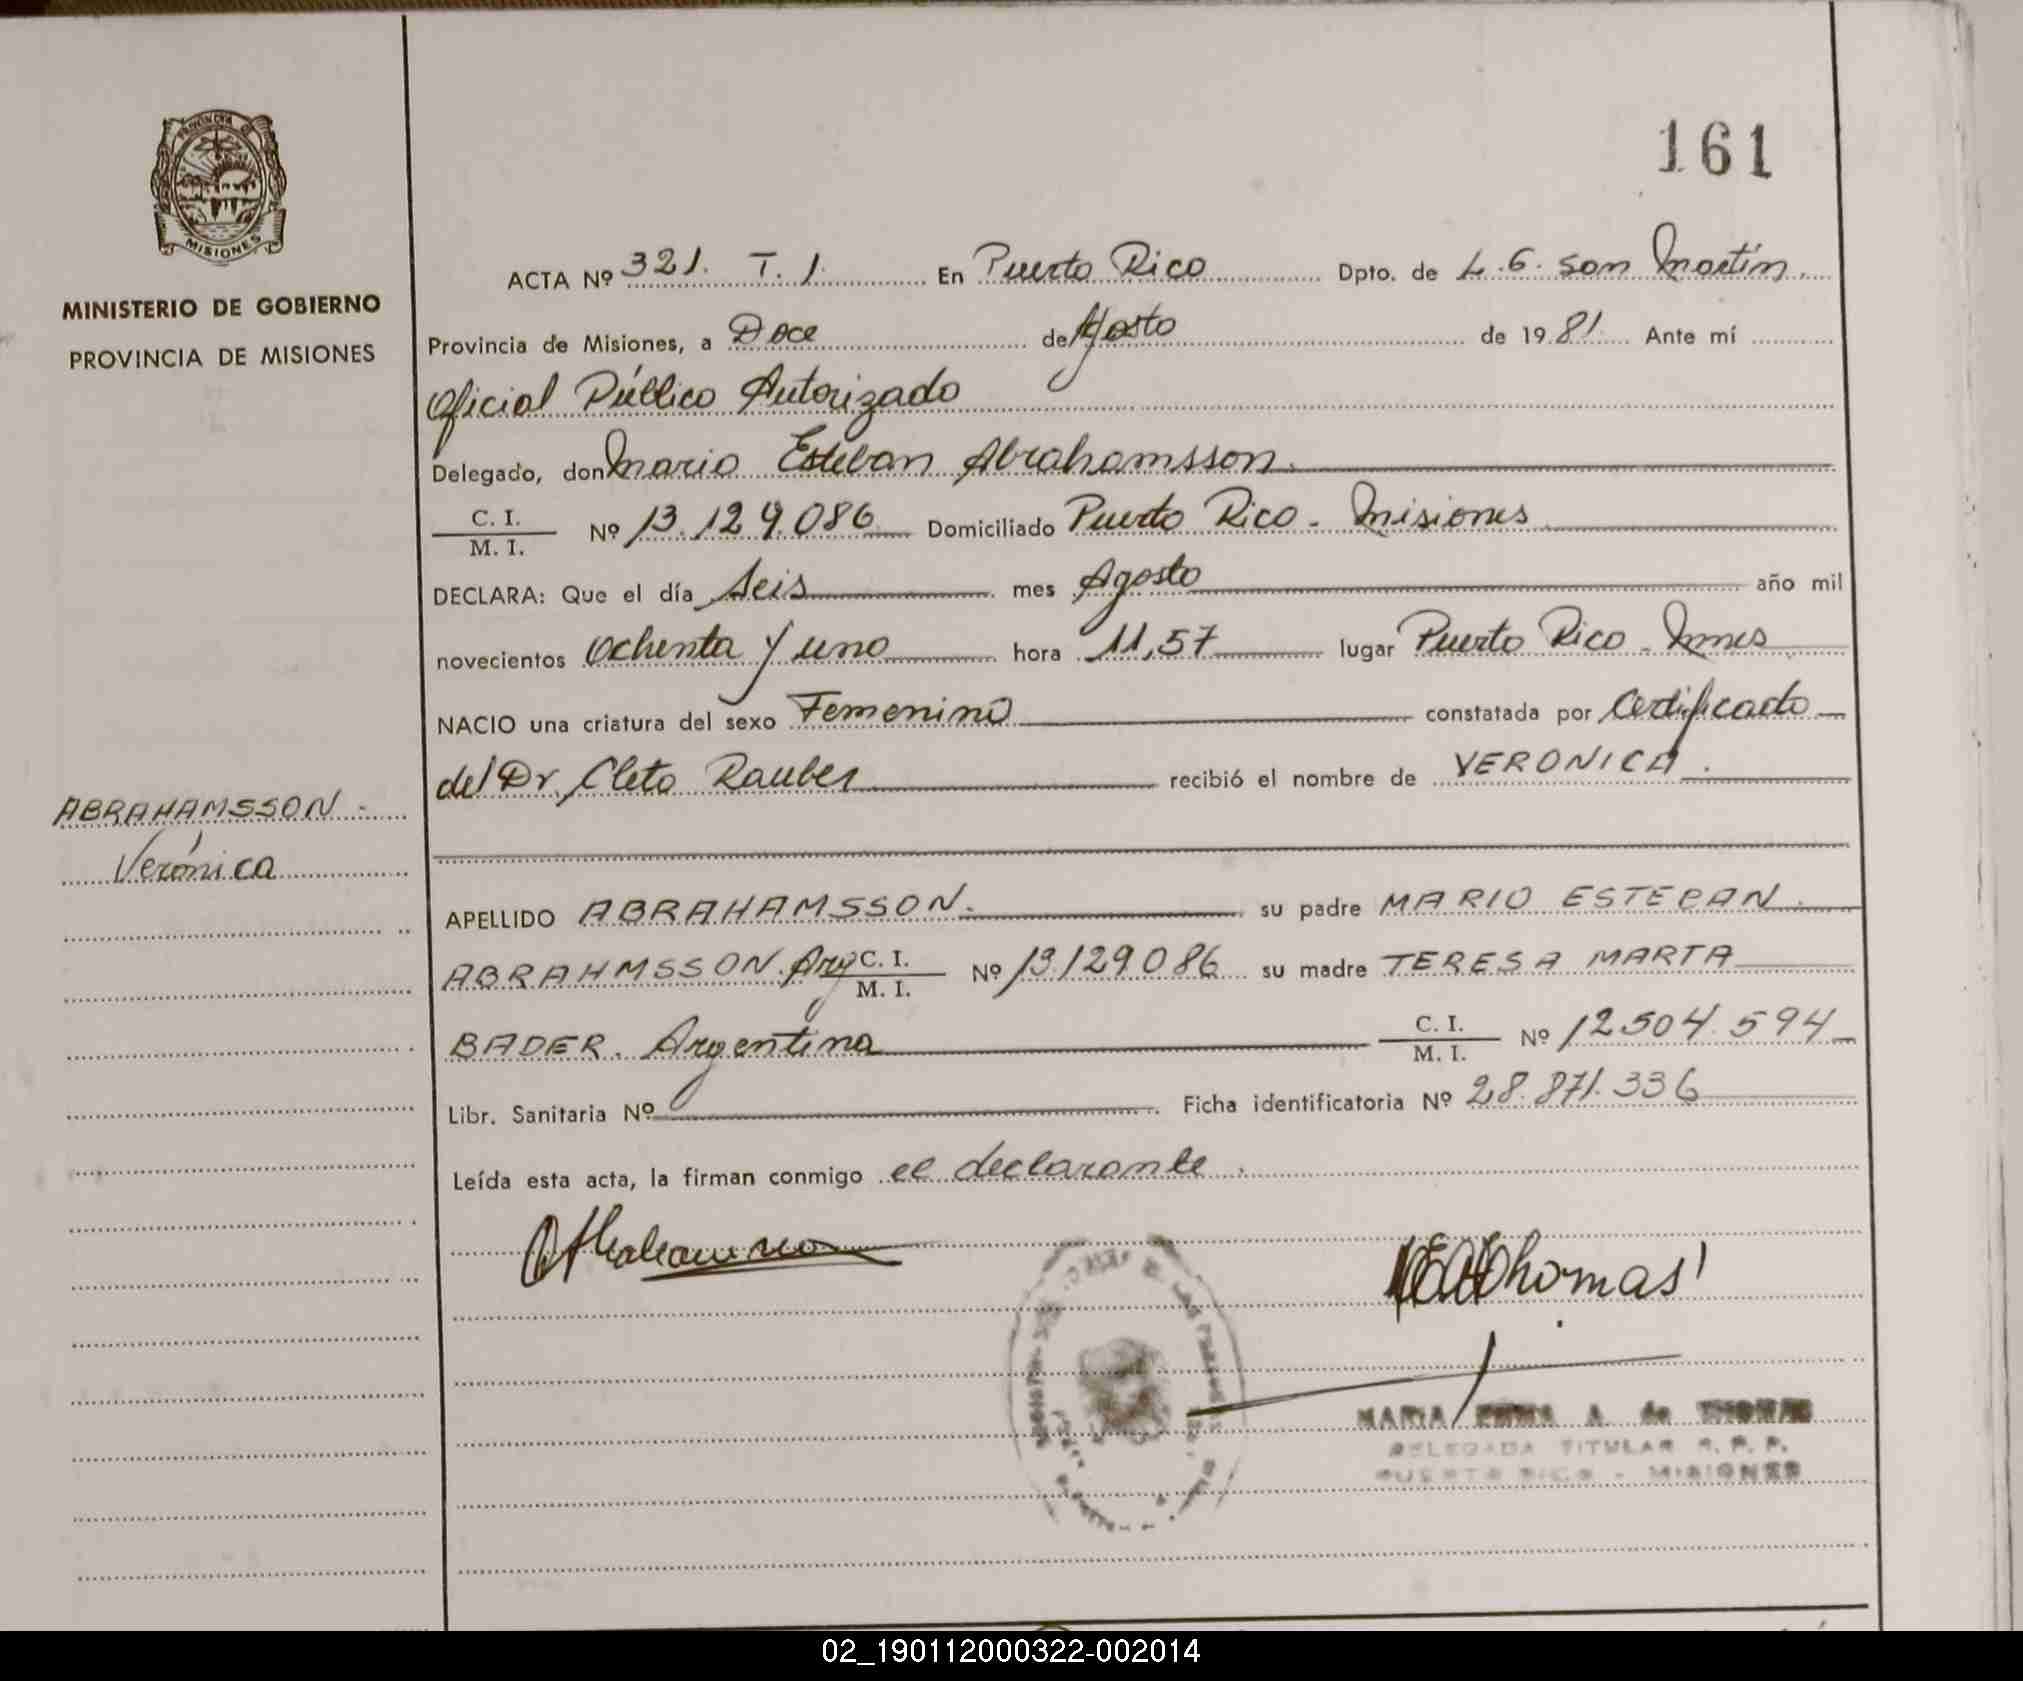 161
PROVINCIA DE
MISIONES
MINISTERIO DE GOBIERNO
PROVINCIA DE MISIONES
ACTA Nº 321. T. 1. En Puerto Rico Dpto. de L. G. San Martín.
Provincia de Misiones, a Doce de Agosto de 1981. Ante mí
Oficial Público Autorizado
Delegado, don Mario Esteban Abrahamsson.
C. I.
M. I. Nº 13.129.086 Domiciliado Puerto Rico - Misiones
DECLARA: Que el día Seis mes Agosto año mil
novecientos Ochenta y uno hora 11,57 lugar Puerto Rico - Mnes
NACIO una criatura del sexo Femenino constatada por Certificado
del Dr. Cleto Rauber recibió el nombre de VERONICA.
ABRAHAMSSON.
Verónica
APELLIDO ABRAHAMSSON. su padre MARIO ESTEBAN
ABRAHMSSON. Arg C. I.
M. I. Nº 13129086 su madre TERESA MARTA
BADER. Argentina C. I.
M. I. Nº 12504.594
Libr. Sanitaria Nº Ficha identificatoria Nº 28.871.336
Leída esta acta, la firman conmigo el declarante.
Abrahamsson
Thomas
MARIA EMMA A. de THOMAS
DELEGADA TITULAR R. P. P.
PUERTO RICO - MISIONES
02_190112000322-002014